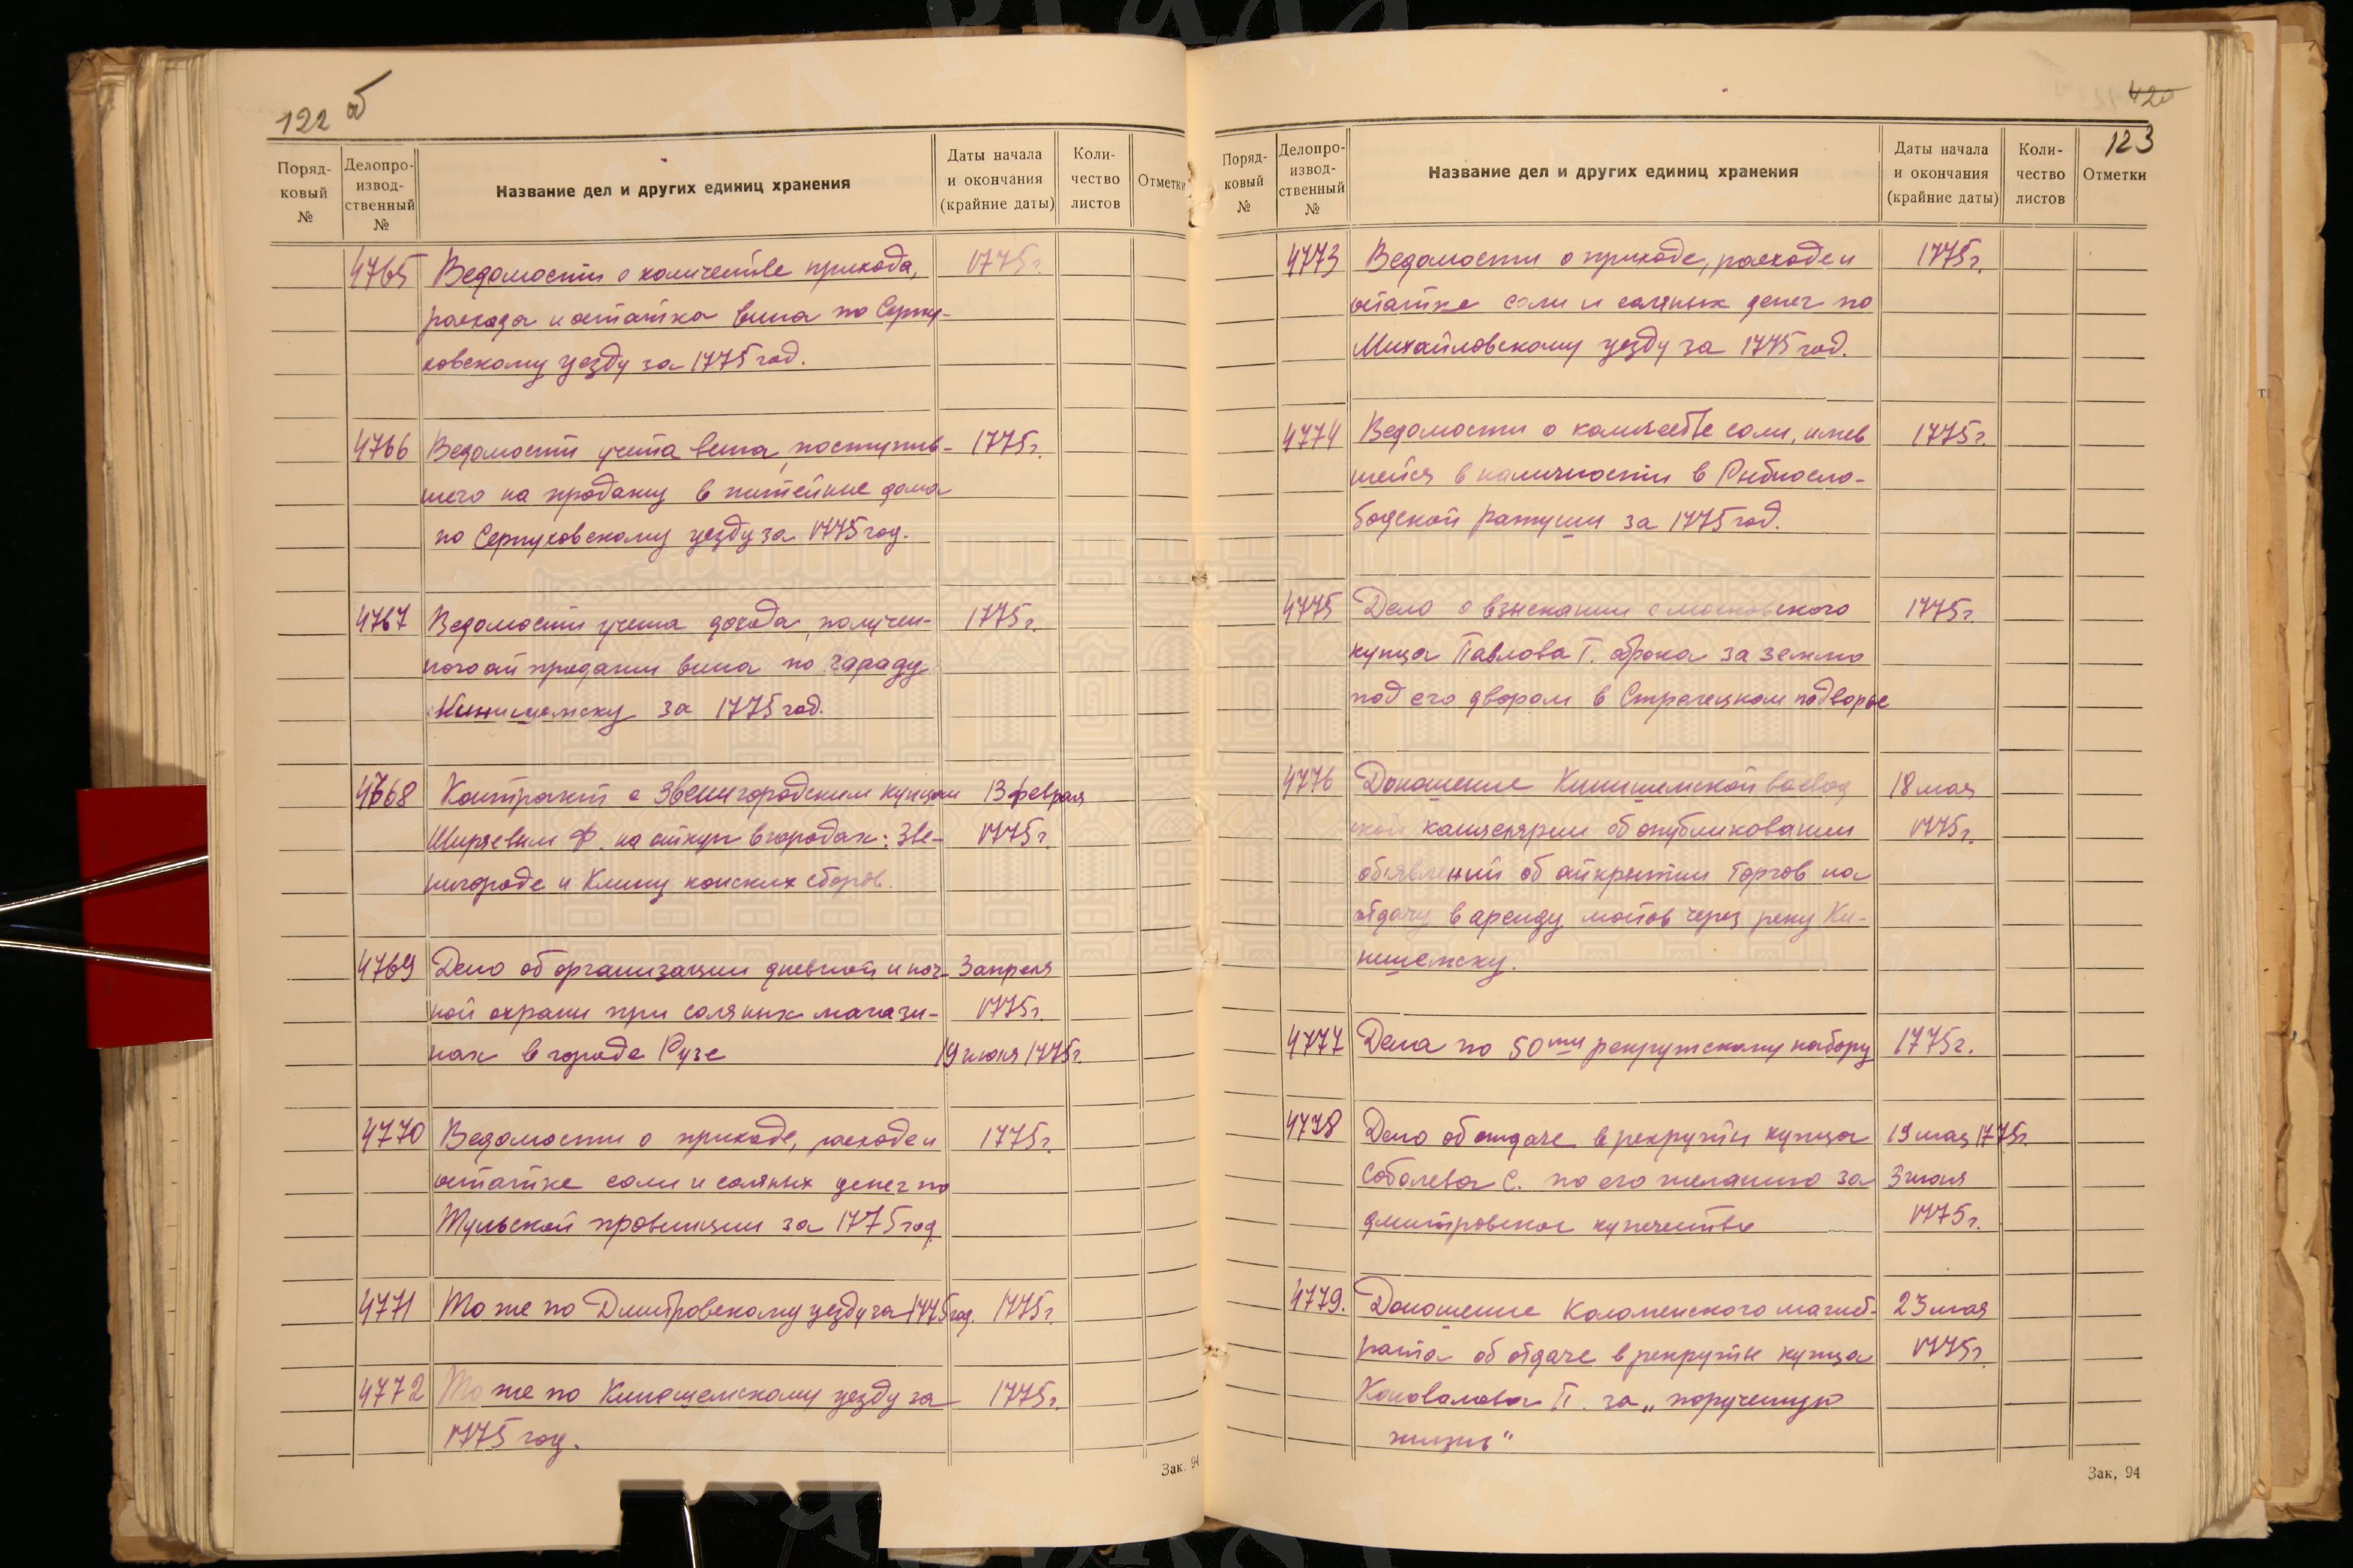 122 об
Поряд-
ковый
№
Делопро-
извод-
ственный
№
Название дел и других единиц хранения
Даты начала
и окончания
(крайние даты)
Коли-
чество
листов
Отметки
4765 Ведомости о количестве прихода, 1775 г.
расхода и остатка вина по Серпу-
ховскому уезду за 1775 год.
4766 Ведомости учета вина, поступив- 1775 г.
шего на продажу в питейные дома
по Серпуховскому уезду за 1775 год.
4767 Ведомости учета дохода, получен- 1775 г.
ного от продажи вина по городу
Кинишемску за 1775 год.
4768 Контракт с Звенигородским купцом 13 февраля
Ширяевым Ф. на откуп в городах: Зве- 1775 г.
нигороде и Клину конских сборов.
4769 Дело об организации дневной и ноч- 3 апреля
ной охраны при соляных магази- 1775 г.
нах в городе Рузе 19 июня 1775 г.
4770 Ведомости о приходе, расходе и 1775 г.
остатке соли и соляных денег по
Тульской провинции за 1775 год
4771 То же по Дмитровскому уезду за 1775 год. 1775 г.
4772 То же по Кинешемскому уезду за 1775 г.
1775 год.
Зак. 94
420
123
Поряд-
ковый
№
Делопро-
извод-
ственный
№
Название дел и других единиц хранения
Даты начала
и окончания
(крайние даты)
Коли-
чество
листов
Отметки
4773 Ведомости о приходе, расходе и 1775 г.
остатке соли и соляных денег по
Михайловскому уезду за 1775 год.
4774 Ведомости о количестве соли, имев 1775 г.
шейся в наличности в Рыбносло-
бодской ратуши за 1775 год.
4775 Дело о взыскании с московского 1775 г.
купца Павлова Г. оброка за землю
под его двором в подворье
4776 Доношение Кинишемской воевод 18 мая
ской канцелярии об опубликовании 1775 г.
объявлений об открытии торгов на
отдачу в аренду мостов через реку Ки-
нишемску.
4777 Дела по 50ти рекрутскому набору 1775 г.
4778 Дело об отдаче в рекруты купца 19 мая 1775 г.
Соболева С. по его желанию за 3 июля
дмитровское купечество 1775 г.
4779. Доношение Коломенского магист- 23 мая
рата об отдаче в рекруты купца 1775 г.
Коновалова П. за „порученную
жизнь“
Зак. 94